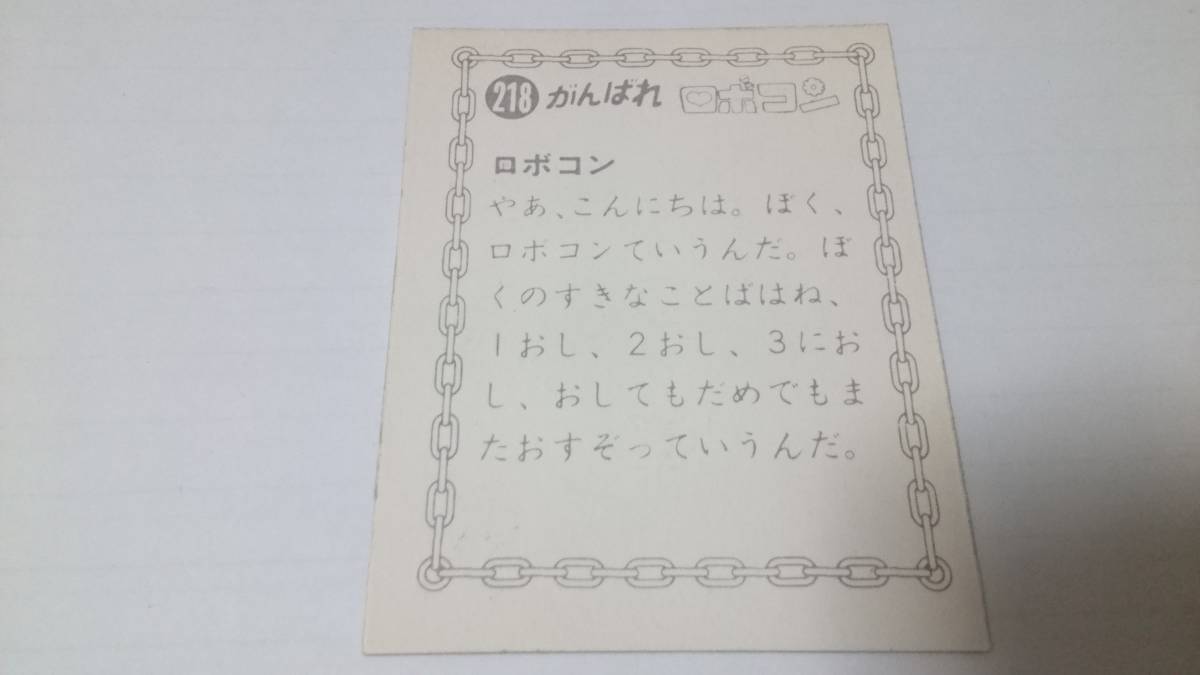 218 がんばれ ロボコン
ロボコン
やあ、こんにちは。ぼく、
ロボコンていうんだ。ぼ
くのすきなことばはね、
1おし、2おし、3にお
し、おしてもだめでもま
たおすぞっていうんだ。